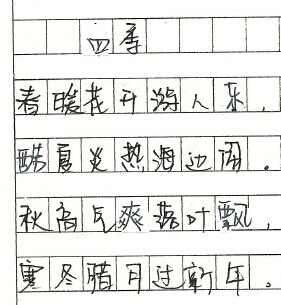 四季
春暖花开游人来，
酷夏炎热海边闹。
秋高气爽落叶飘，
寒冬腊月过新年。